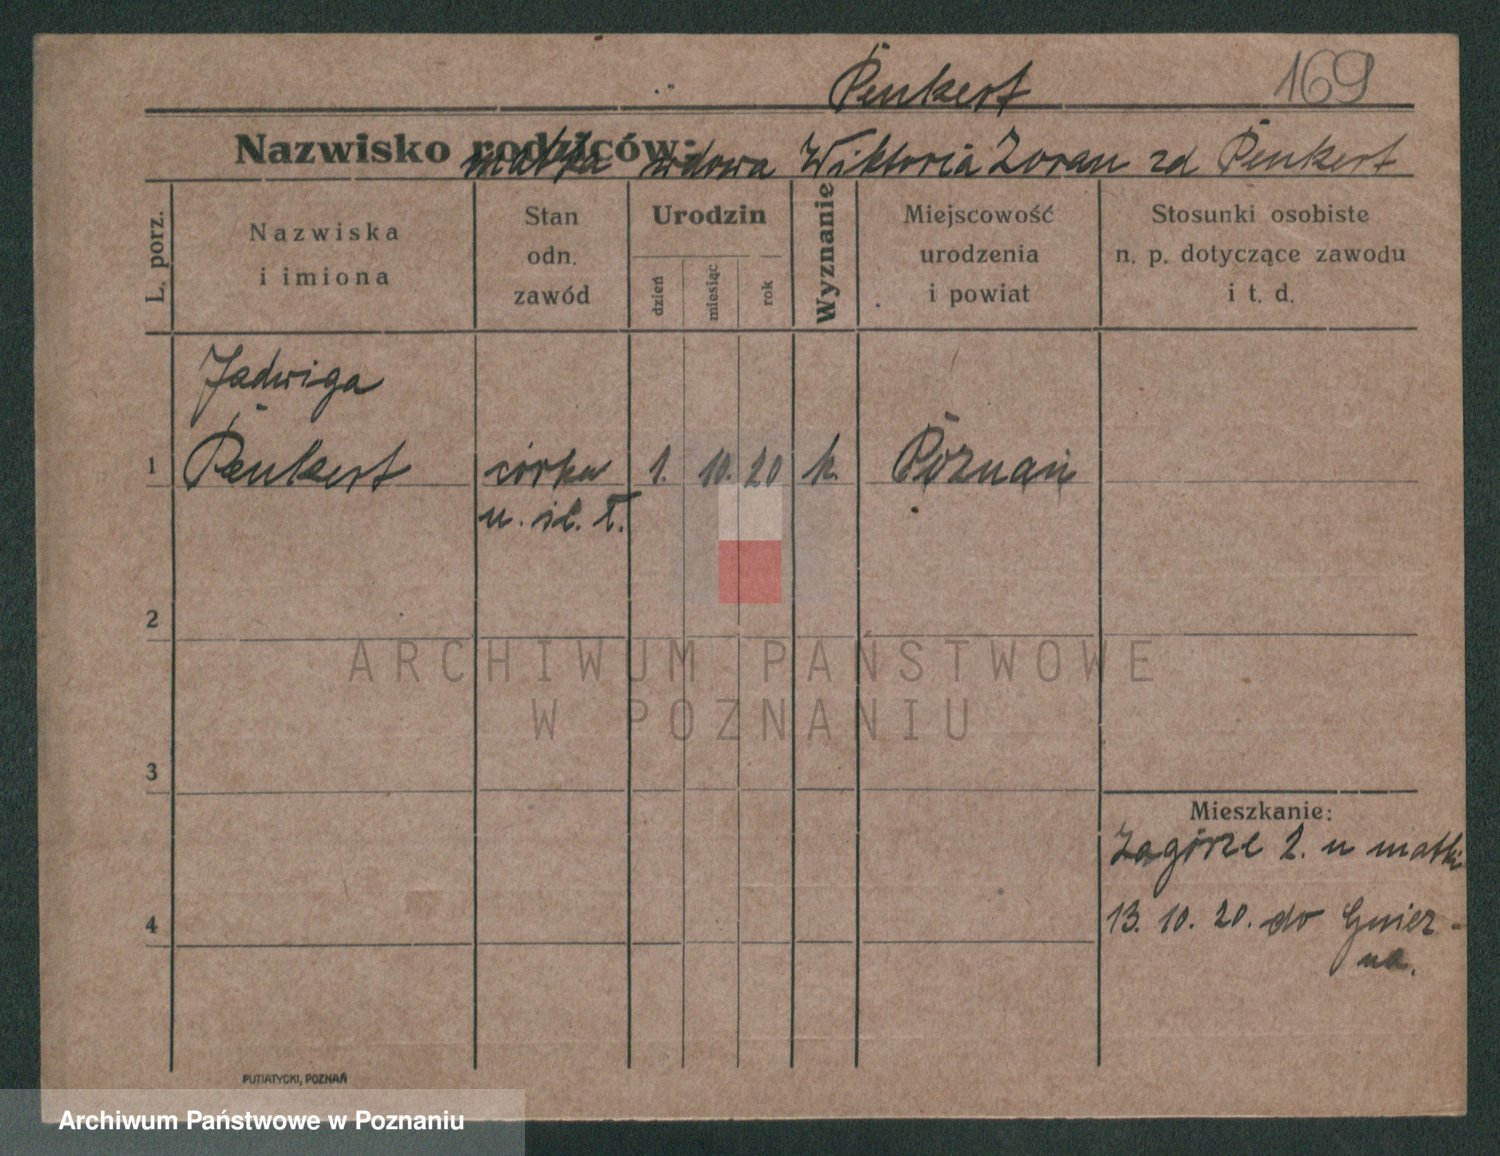 Penkert 169
Nazwisko rodziców:
matka wdowa Wiktoria Zoran zd Penkert
L. porz.
Nazwiska
i imiona
Stan
odn.
zawód
Urodzin
dzień
miesiąc
rok
Wyznanie
Miejscowość
urodzenia
i powiat
Stosunki osobiste
n. p. dotyczące zawodu
i t. d.
Jadwiga
1 Penkert córka 1. 10. 20 k. Poznań
2
ARCHIWUM PAŃSTWOWE
W POZNANIU
3
Mieszkanie:
Zagórze 2. u matki
13. 10. 20. do Gniez-
4
na.
PUTIATYCKI, POZNAŃ
Archiwum Państwowe w Poznaniu